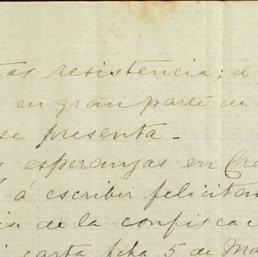 tas resistencia; e
en gran parte de
se presenta.
esperanzas en Cre
á escribir felicitan
cia de la confiscac
carta fcha 5 de Ma